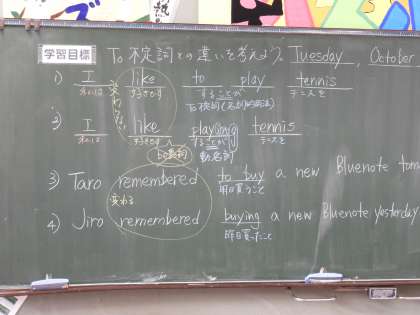 学習目標 To不定詞との違いを考えよう。 Tuesday, October
1) I like to play tennis
私は 好きです すること テニスを
To不定詞(名詞的用法)
変わらない
2) I like playing tennis
私は 好きです すること テニスを
動名詞
3) Taro remembered to buy a new Bluenote tom
変わる 明日買うこと
4) Jiro remembered buying a new Bluenote yesterday
昨日買ったこと